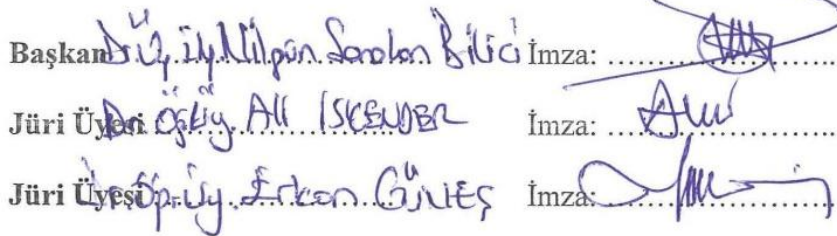 Başkan Dr. Öğr. Üy. Nilgün Sarılan Bilici İmza: ....................
Jüri Üyesi Dr. Öğr. Üy. Ali İSKENDER İmza: ....................
Jüri Üyesi Dr. Öğr. Üy. Erkan GÜNEŞ İmza: ....................